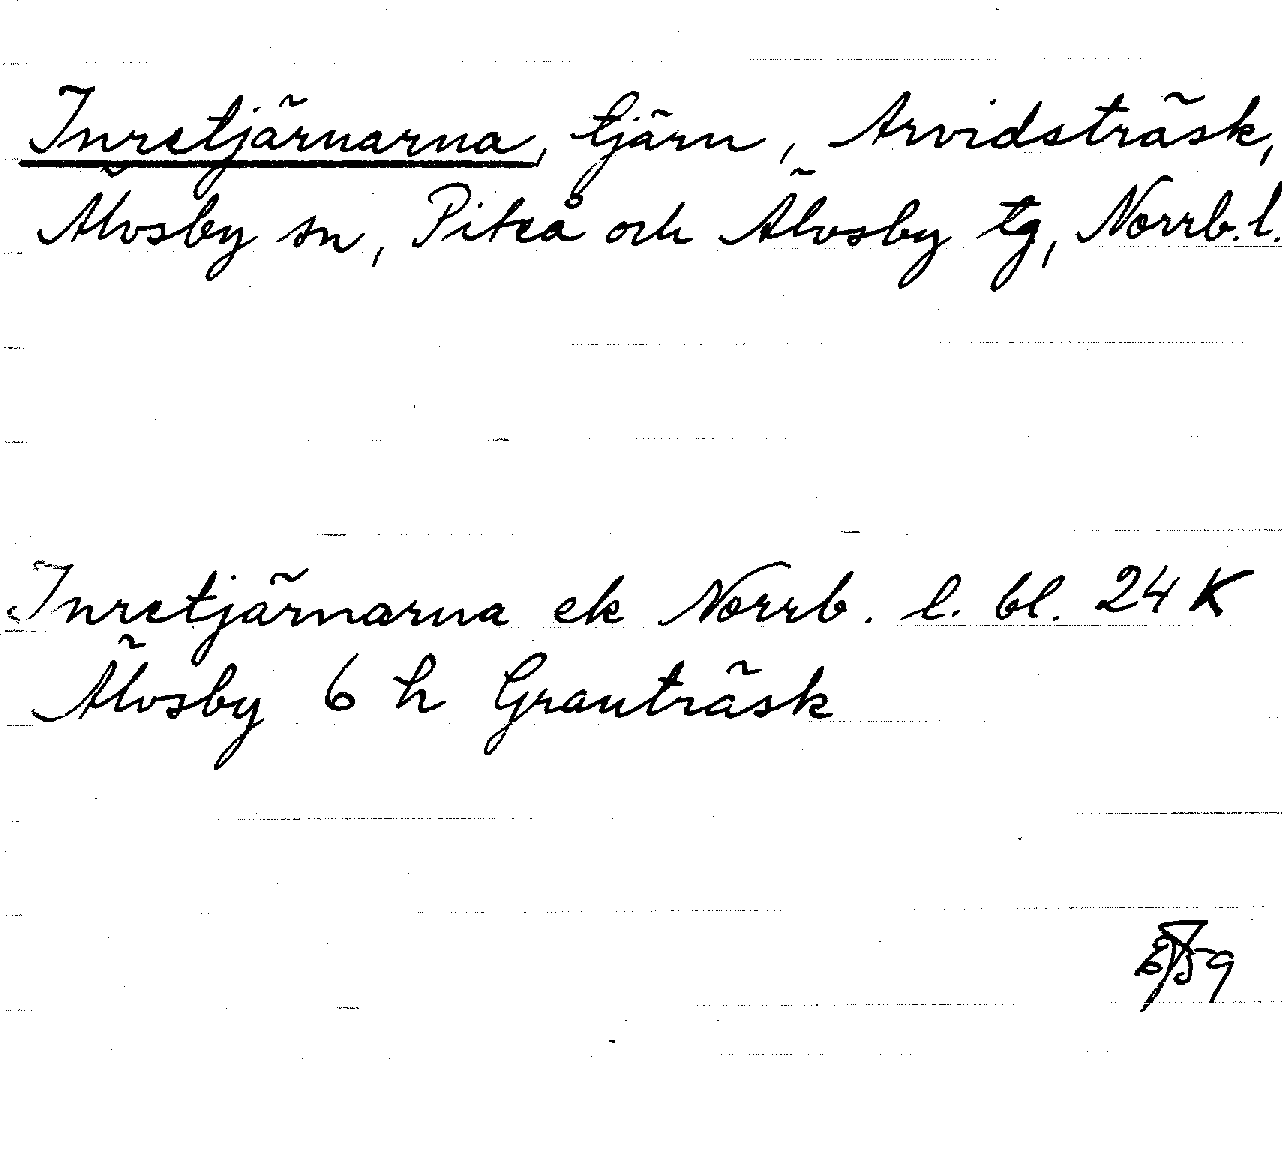 Inretjärnarna, tjärn, Arvidsträsk,
Älvsby sn, Piteå och Älvsby tg, Norrb. l.
Inretjärnarna ek Norrb. l. bl. 24 K
Älvsby 6 h Granträsk